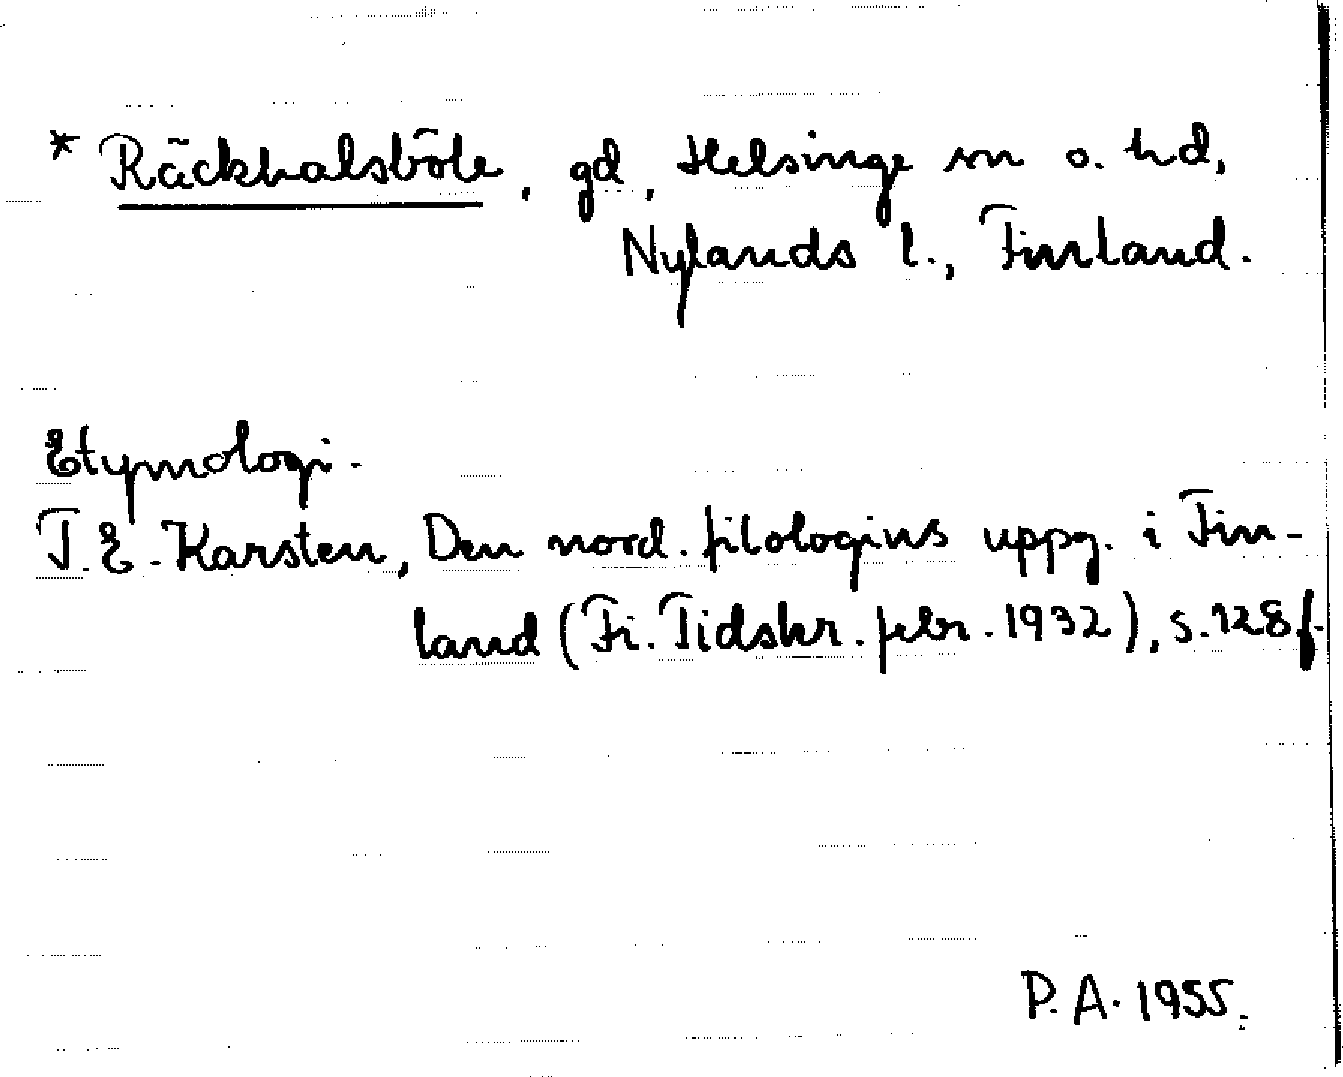 * Räckhalsböle, gd, Helsinge sn o. hd,
Nylands l., Finland.
Etymologi.
T. E. Karsten, Den nord. filologins uppg. i Fin-
land (Fi. Tidskr. febr. 1932), s. 128 f.
P. A. 1955.